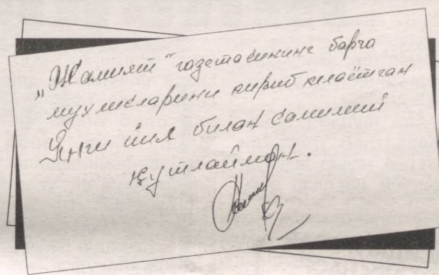 „Жамият" газетасининг барча
мухлисларини кириб келаётган
Янги йил билан самимий
қутлайман.